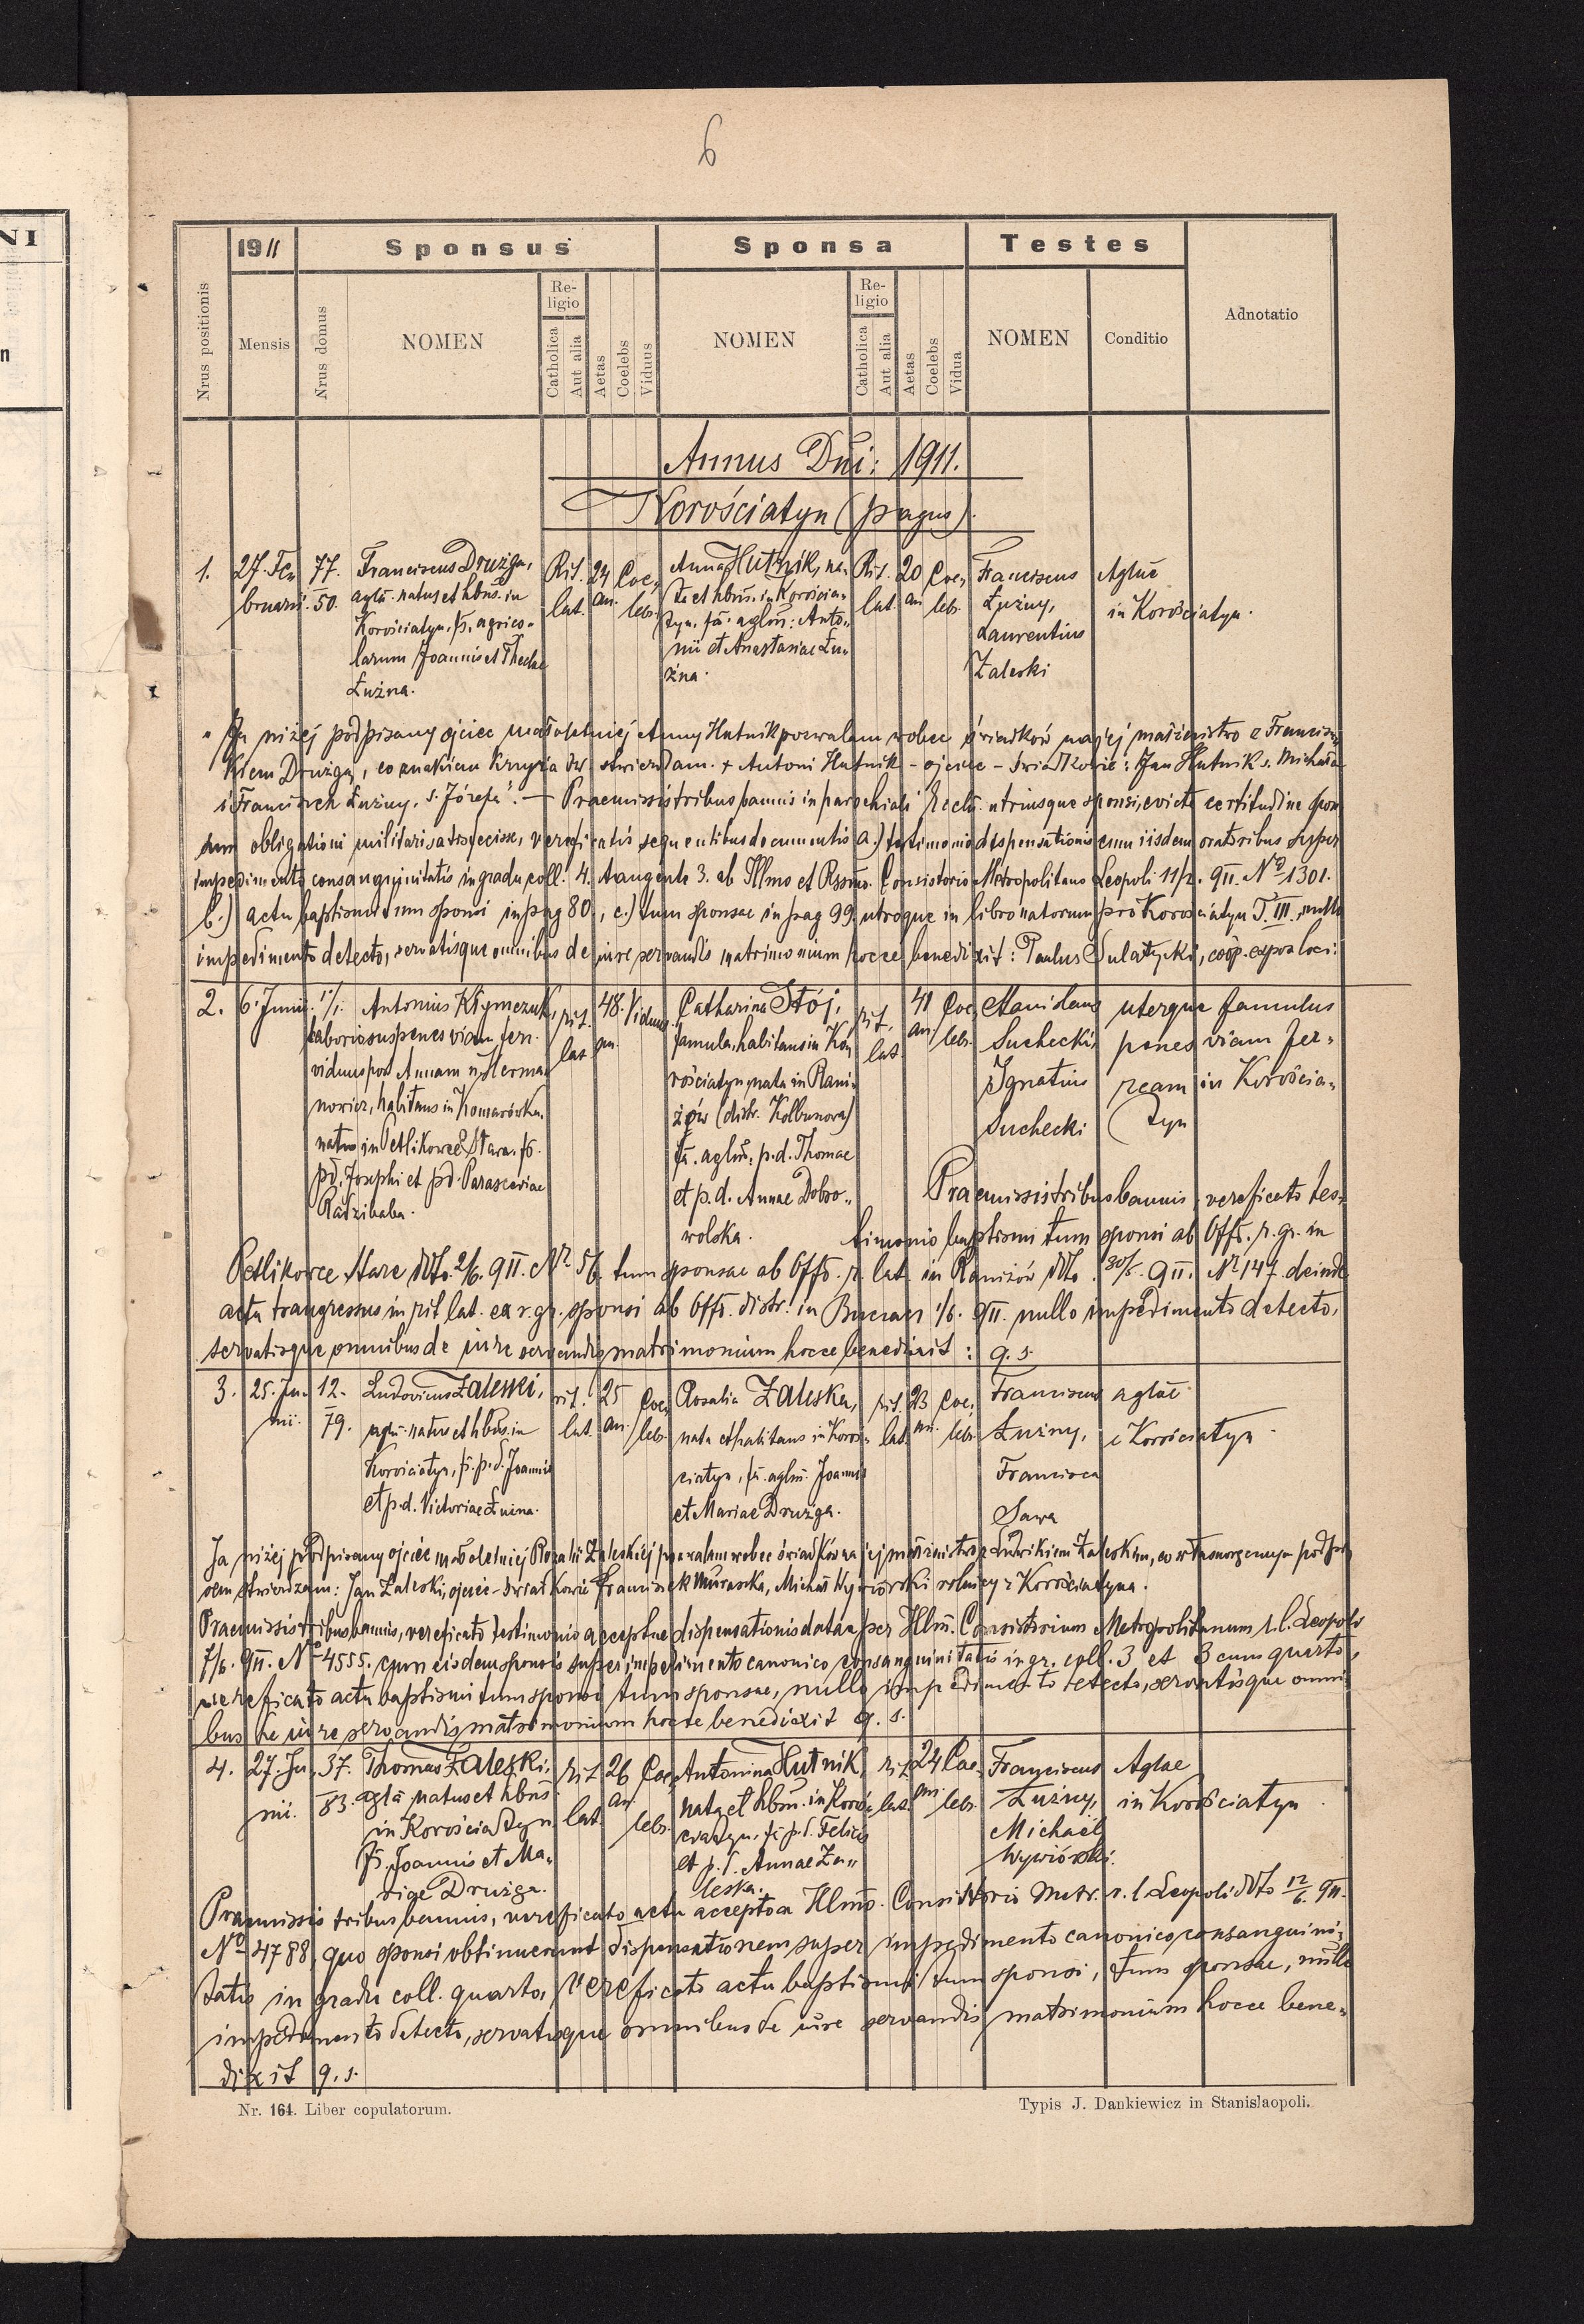 6
NI
n
1911 Sponsus Sponsa Testes
Nrus positionis Mensis Nrus domus NOMEN Religio Catholica Aut alia Aetas Coelebs Viduus NOMEN Religio Catholica Aut alia Aetas Coelebs Vidua NOMEN Conditio Adnotatio
Annus Dni: 1911.
Korościatyn (pagus).
1. 27. Fe-
bruarii.
77.
50.
Franciscus Drużga,
aglā. natus et hbns. in
Korościatyn, fs. agrico-
larum Joannis et Theclae
Łuźna.
Rit.
lat.
24
an.
Coe-
lebs.
Anna Hutnik, na-
ta et hbns. in Korościa-
tyn, fa. aglm: Anto-
nii et Anastasiae Łu-
źna.
Rit.
lat.
20
an
Coe-
lebs.
Franciscus
Łuźny,
Laurentius
Zaleski
Aglae
in Korościatyn.
„Ja niżej podpisany ojciec małoletniej Anny Hutnik pozwalam wobec świadków na jej małżeństwo z Francisz-
kiem Drużgą, co znakiem krzyża św. stwierdzam. + Antoni Hutnik - ojciec - Świadkowie: Jan Hutnik s. Michała
i Franciszek Łuźny, s. Józefa". — Praemissis tribus bannis in parochiali eccla. utriusque sponsi, evicta certitudine spon-
sum obligationi militari satisfecisse, verificatis sequentibus documentis a.) testimonio dispensationis cum iisdem oratoribus super
impedimento consanguinitatis in gradu coll. 4. tangente 3. ab Illmo et Rssmo. Consistorio Metropolitano Leopoli 11/2. 911. No 1301.
b.) actu baptismi tum sponsi in pag 80., c.) tum sponsae in pag 99 utroque in libro natorum pro Korościatyn T. III., nullo
impedimento detecto, servatisque omnibus de iure servandis matrimonium hocce benedixit: Paulus Sulatycki, coop. expos loci:
2. 6. Junii. 1/1.
Antonius Klymczuk,
laboriosus penes viam ferr.
viduus post Annam n. Herma-
nowicz, habitans in Komarówka
natus in Petlikowce Stare, fs.
pd. Josephi et pd. Parasceviae
Radzibaba.
rit.
lat
48.
an.
Viduus.
Catharina Stój,
famula, habitans in Ko-
rościatyn, nata in Rani-
żów (distr. Kolbuszowa)
fa. aglm, p.d. Thomae
et p.d. Annae Dobro-
wolska.
rit.
lat.
41
an.
Coe-
lebs.
Stanislaus
Suchecki,
Ignatius
Suchecki
uterque famulus
penes viam fer-
ream in Korościa-
tyn
Praemissis tribus bannis, verificato tes-
timonio baptismi tum sponsi ab Offo. r. gr. in
Petlikowce Stare ddto. 2/6. 911. No 56. tum sponsae ab Offo. r. lat. in Raniżów ddto. 30/5. 911. No 147. deinde
actu transgressus in rit lat. ex r. gr. sponsi ab Offo. distr. in Buczacz 1/6. 911. nullo impedimento detecto,
servatisque omnibus de iure servandis matrimonium hocce benedixit: q. s.
3. 25. Ju-
nii.
12.
79.
Ludovicus Zaleski,
aglā. natus et hbns. in
Korościatyn, fs. p.d. Joannis
et p.d. Victoriae Łuźna.
rit.
lat.
25
an.
Coe-
lebs.
Rosalia Zaleska,
nata et habitans in Koroś-
ciatyn, fa. aglm. Joannis
et Mariae Drużga.
rit.
lat.
23
an.
Coe-
lebs.
Franciscus
Łuźny,
Francisca
Sawa
aglae
e Korościatyn.
Ja niżej podpisany ojciec małoletniej Rozalii Zaleskiej pozwalam wobec świadków na jej małżeństwo z Ludwikiem Zaleskim, co własnoręcznym podpi-
sem stwierdzam: Jan Zaleski, ojciec - świadkowie Franciszek Muraszka, Michał Wywiórski rolnicy z Korościatyna.
Praemissis tribus bannis, verificato testimonio acceptae dispensationis datae per Illm. Consistorium Metropolitanum r. l. Leopoli
7/6. 911. No 4555. cum eisdem sponsis super impedimento canonico consanguinitatis in gr. coll. 3 et 3 cum quarto,
verificato actu baptismi tum sponsi tum sponsae, nullo impedimento detecto, servatisque omni-
bus de iure servandis matrimonium hocce benedixit q. s.
4. 27. Ju-
nii.
37.
83.
Thomas Zaleski,
aglā natus et hbns
in Korościatyn
fs. Joannis et Ma-
riae Drużga.
Rit
lat.
26
an.
Coe-
lebs.
Antonina Hutnik,
nata et hbns. in Koroś-
ciatyn, fa p.d. Felicis
et p.d. Annae Za-
leska.
rit.
lat.
24
an.
Coe-
lebs.
Franciscus
Łuźny,
Michael
Wywiórski.
Aglae
in Korościatyn
Praemissis tribus bannis, verificato actu accepto a Illmo. Consistorio Metr. r. l. Leopoli ddto 12/6. 911.
No 4788, quo sponsi obtinuerunt dispensationem super impedimento canonico consanguini-
tatis in gradu coll. quarto, vereficato actu baptismi tum sponsi, tum sponsae, nullo
impedimento detecto, servatisque omnibus de iure servandis matrimonium hocce bene-
dixit q. s.
Nr. 164. Liber copulatorum. Typis J. Dankiewicz in Stanislaopoli.